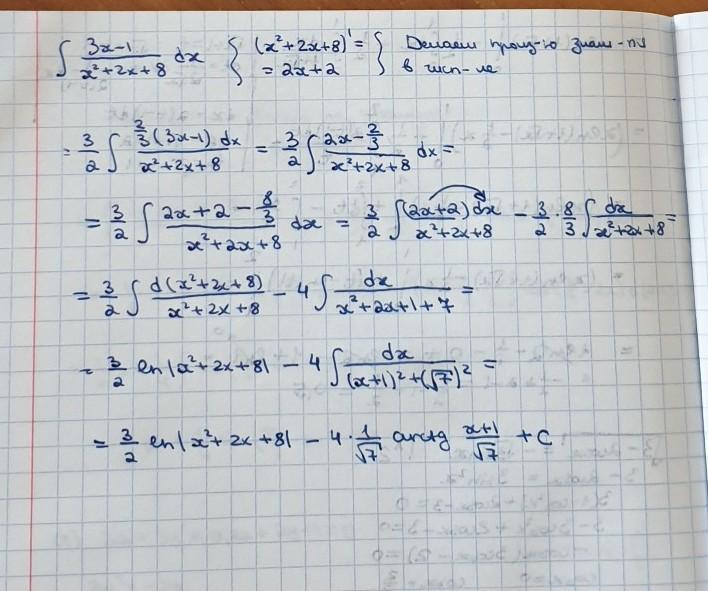 ∫ (3x-1)/(x²+2x+8) dx { (x²+2x+8)' = = 2x+2 } Делаем произ-ю знам-ля в числ-ле
= 3/2 ∫ (2/3 (3x-1) dx)/(x²+2x+8) = 3/2 ∫ (2x - 2/3)/(x²+2x+8) dx =
= 3/2 ∫ (2x+2 - 8/3)/(x²+2x+8) dx = 3/2 ∫ ((2x+2) dx)/(x²+2x+8) - 3/2 · 8/3 ∫ dx/(x²+2x+8) =
= 3/2 ∫ d(x²+2x+8)/(x²+2x+8) - 4 ∫ dx/(x²+2x+1+7) =
= 3/2 ln|x²+2x+8| - 4 ∫ dx/((x+1)²+(√7)²) =
= 3/2 ln|x²+2x+8| - 4 · 1/√7 arctg (x+1)/√7 + C